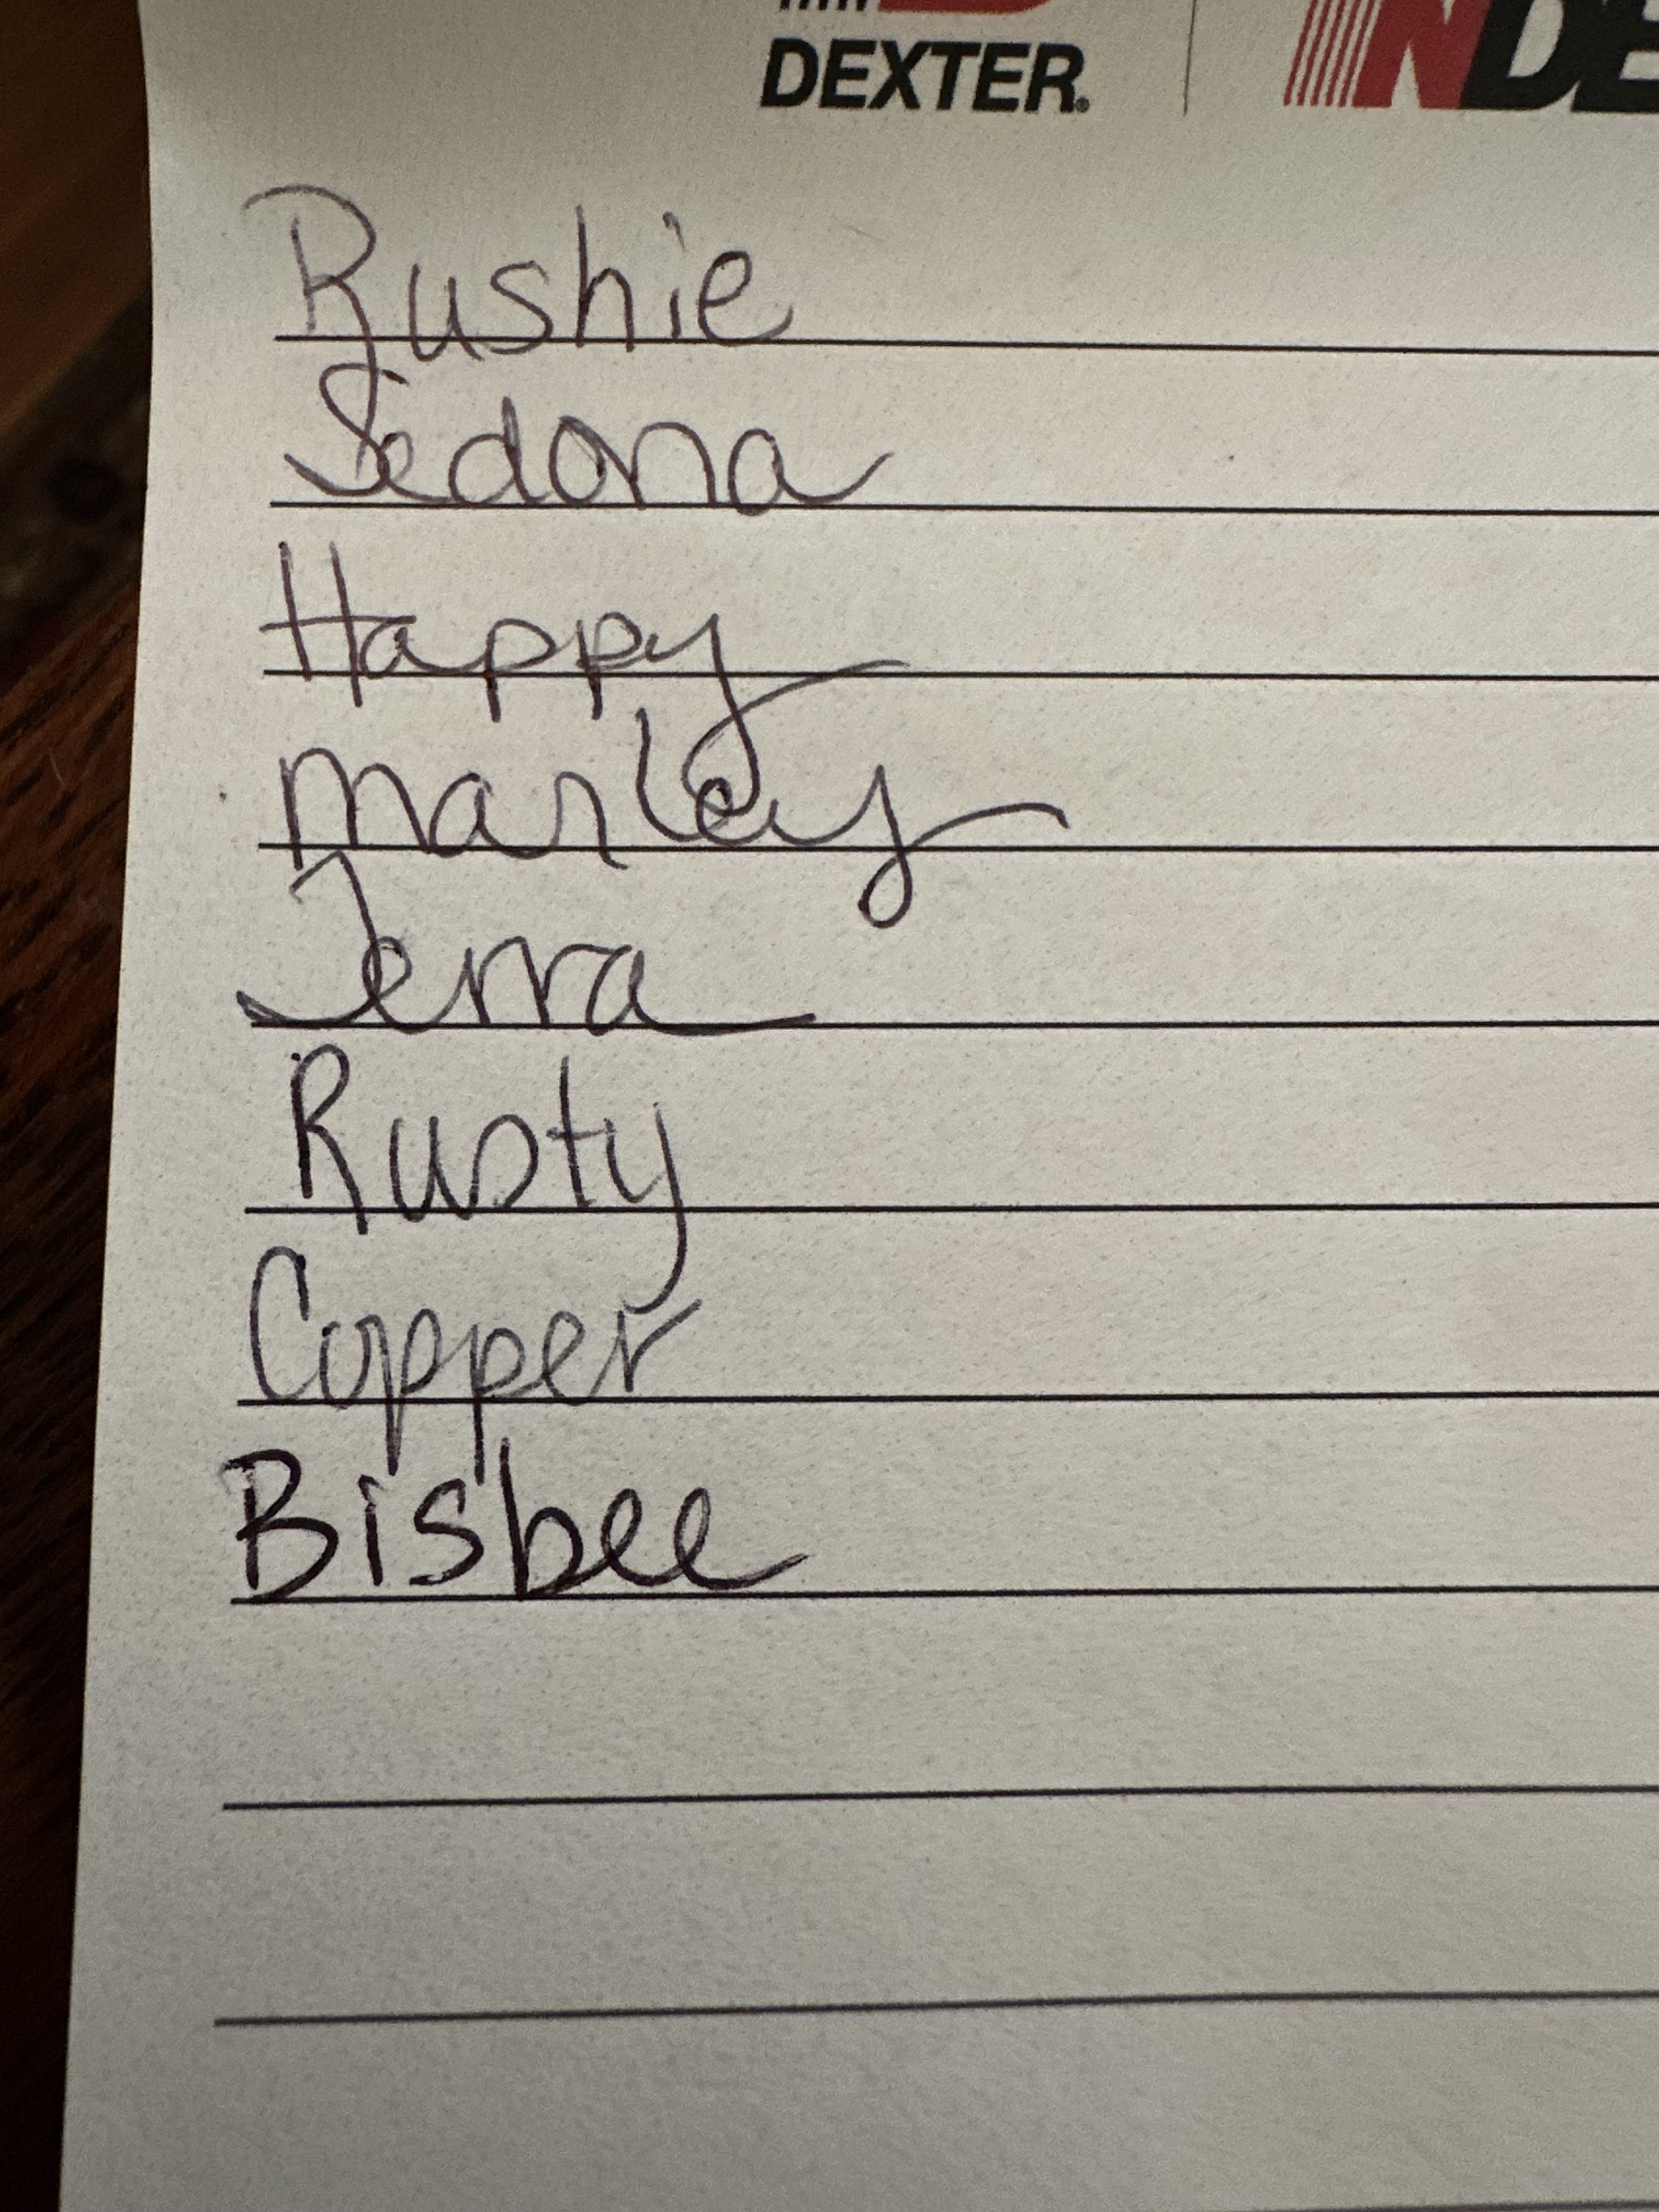 DEXTER.
Rushie
Sedona
Happy
Marley
Terra
Rusty
Copper
Bisbee